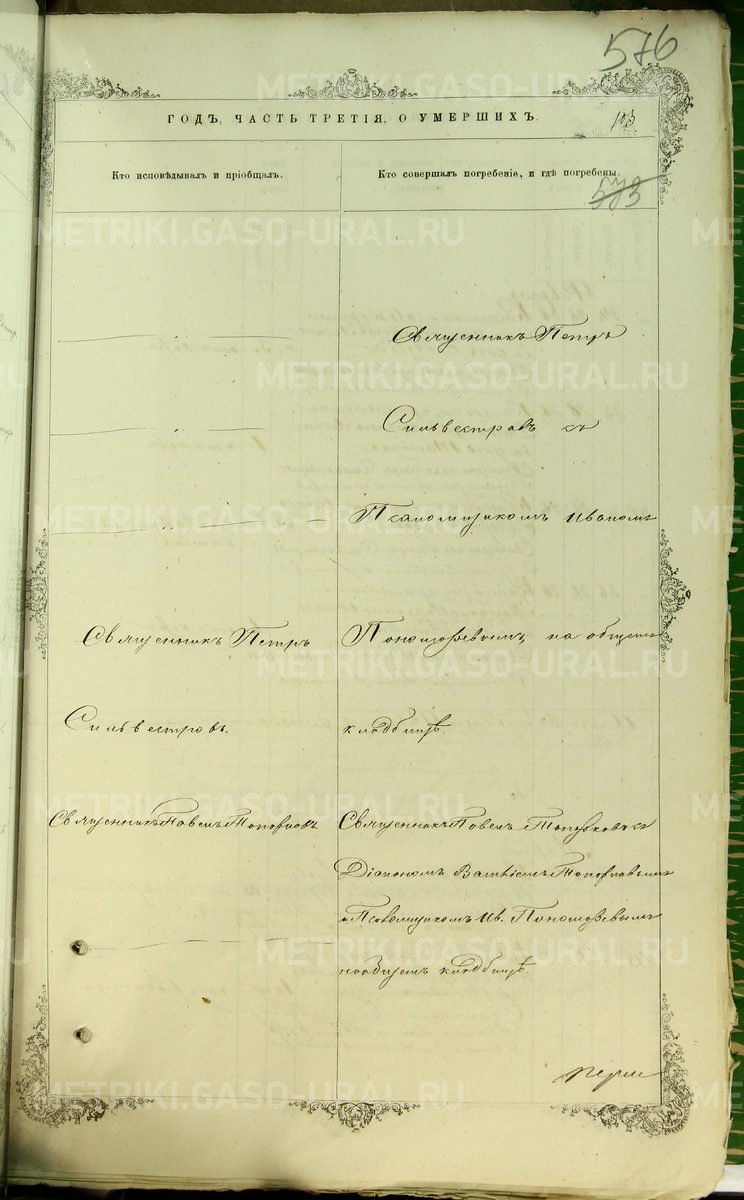 576
ГОДЪ, ЧАСТЬ ТРЕТІЯ, О УМЕРШИХЪ.
Кто исповѣдывалъ и пріобщалъ.
Кто совершалъ погребеніе, и гдѣ погребены.
Священникъ Петръ
Сильвестровъ съ
Псаломщикомъ Иваномъ
Пономаревымъ, на общемъ
кладбищѣ.
Священникъ Петръ
Сильвестровъ.
Священникъ Павелъ Топорковъ
Священникъ Павелъ Топорковъ съ
Діакономъ Топорковымъ
и Псаломщикомъ Ив. Пономаревымъ
на общемъ кладбищѣ.
METRIKI.GASO-URAL.RU